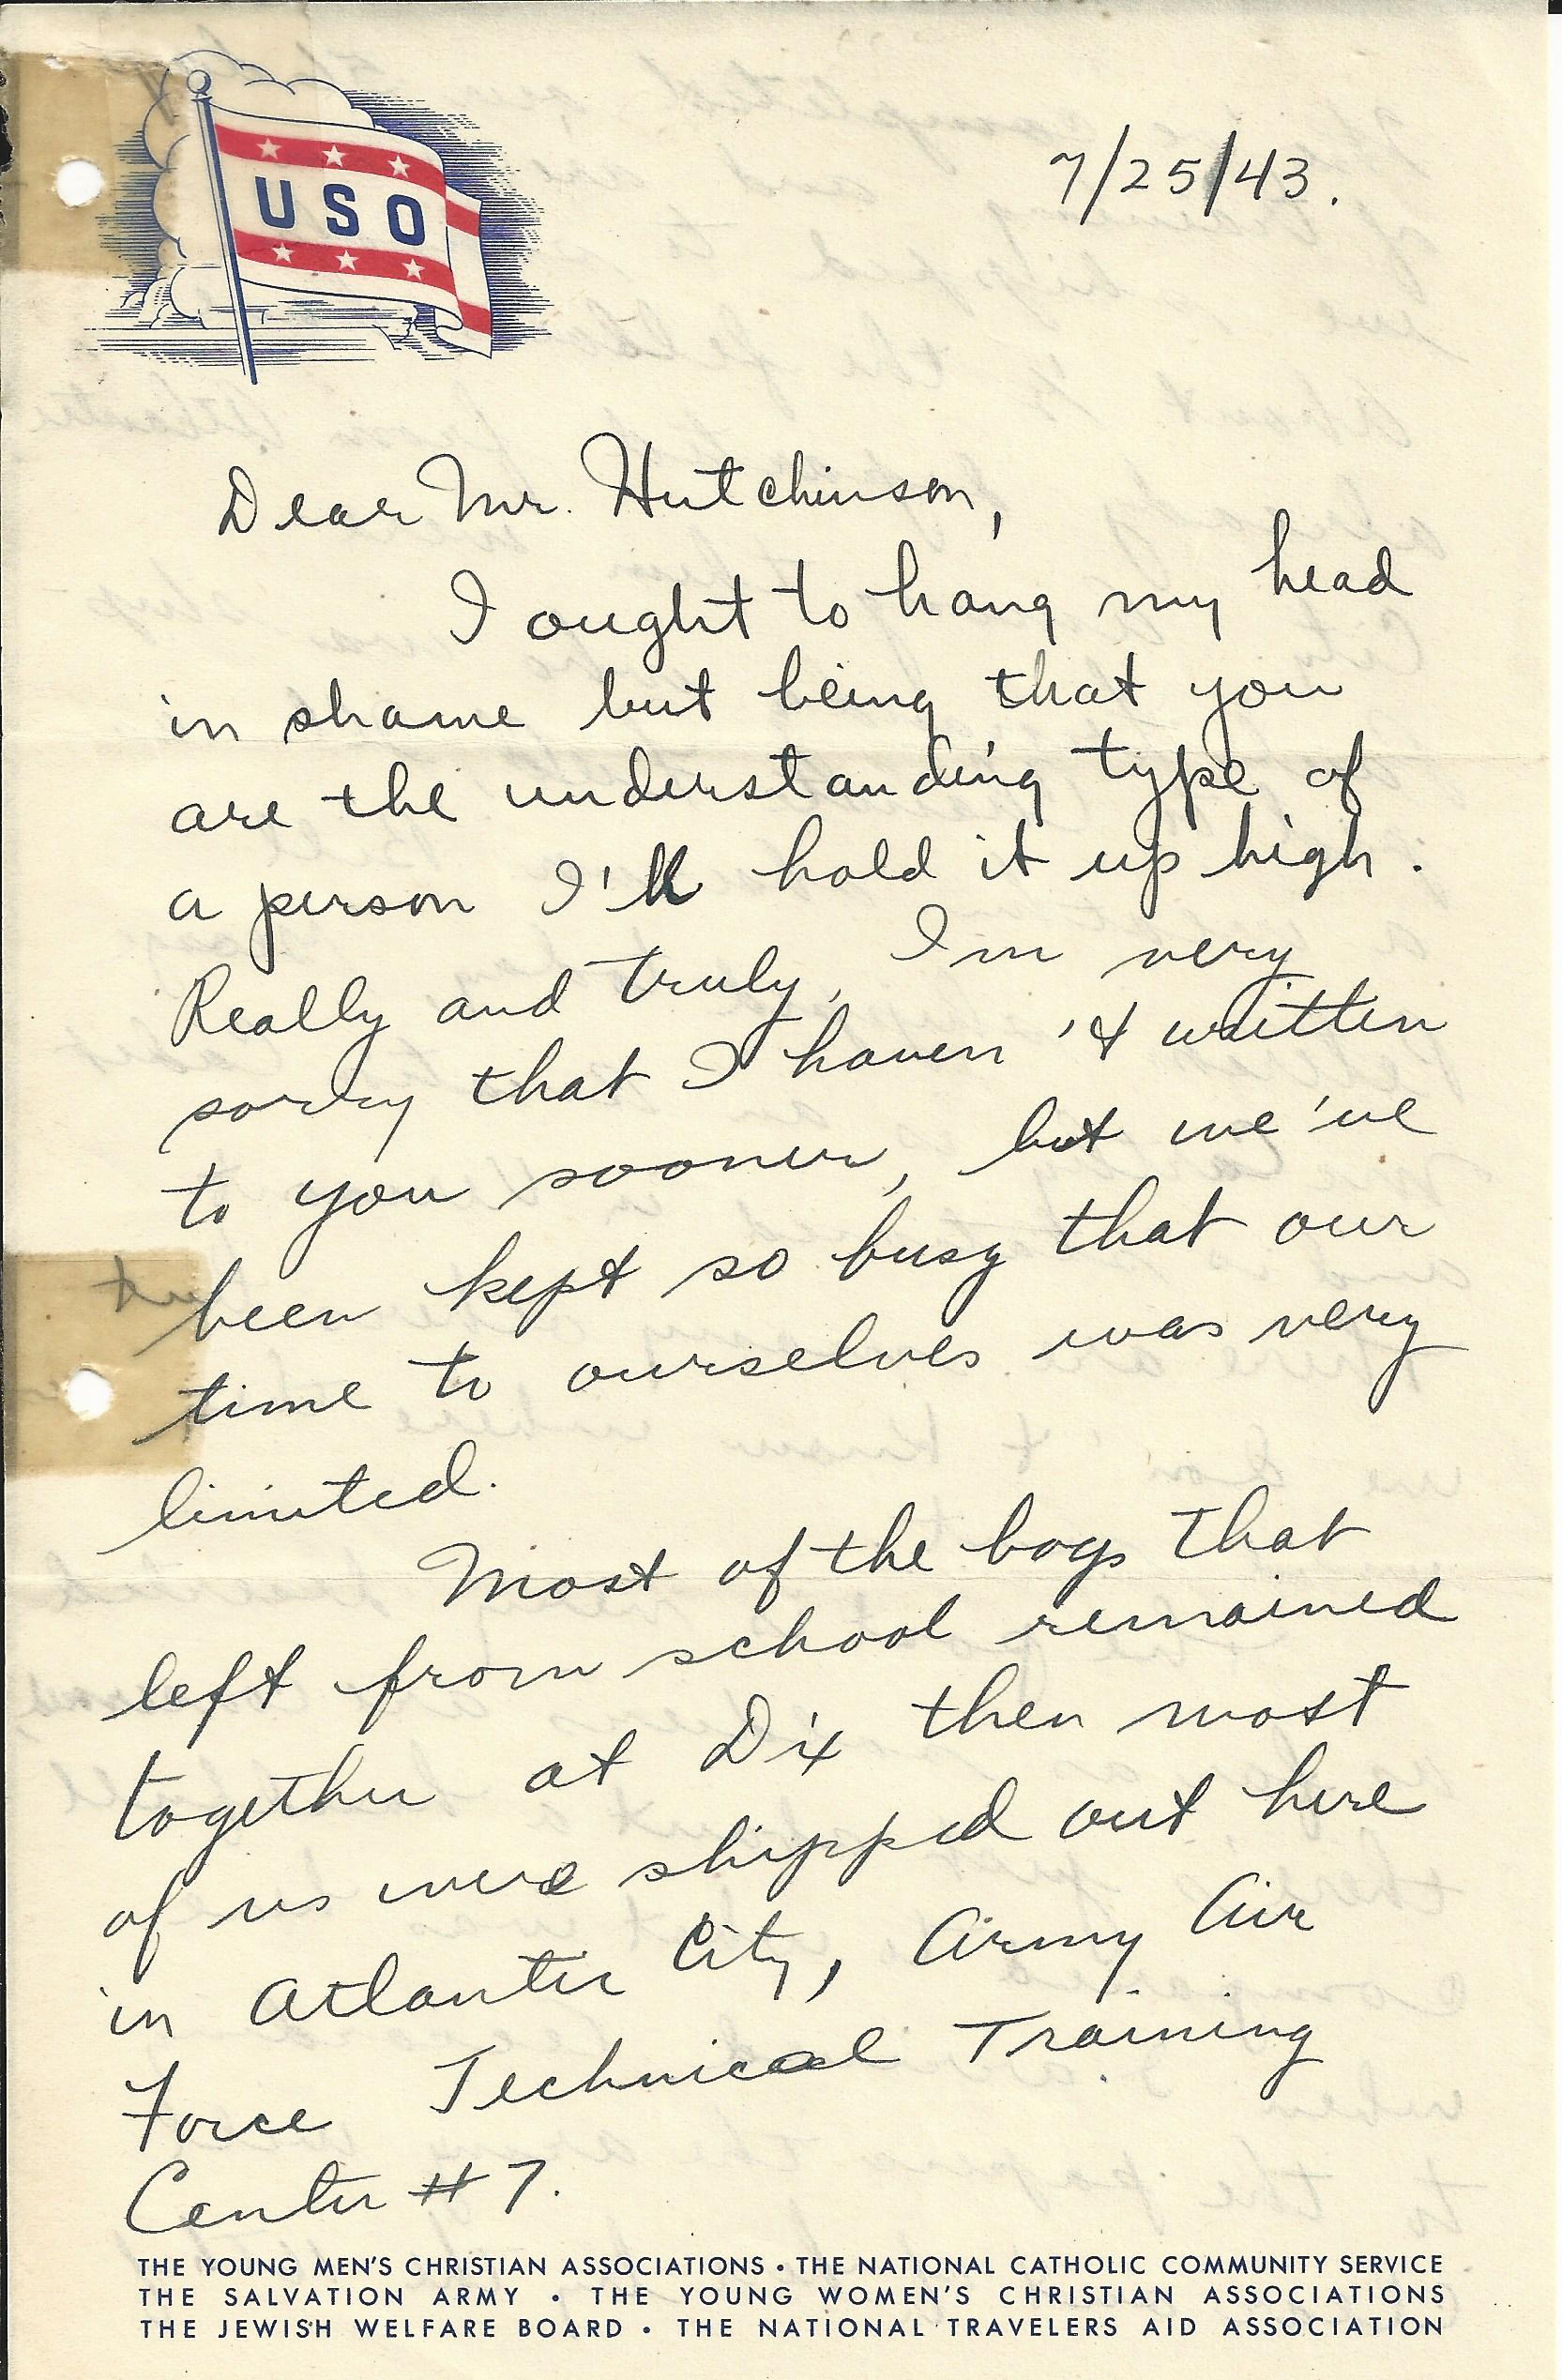 USO
7/25/43.
Dear Mr. Hutchinson,
I ought to hang my head
in shame but being that you
are the understanding type of
a person I'll hold it up high.
Really and truly, I'm very
sorry that I haven't written
to you sooner, but we've
been kept so busy that our
time to ourselves was very
limited.
Most of the boys that
left from school remained
together at Dix then most
of us were shipped out here
in Atlantic City, Army Air
Force Technical Training
Center #7.
THE YOUNG MEN'S CHRISTIAN ASSOCIATIONS • THE NATIONAL CATHOLIC COMMUNITY SERVICE
THE SALVATION ARMY • THE YOUNG WOMEN'S CHRISTIAN ASSOCIATIONS
THE JEWISH WELFARE BOARD • THE NATIONAL TRAVELERS AID ASSOCIATION